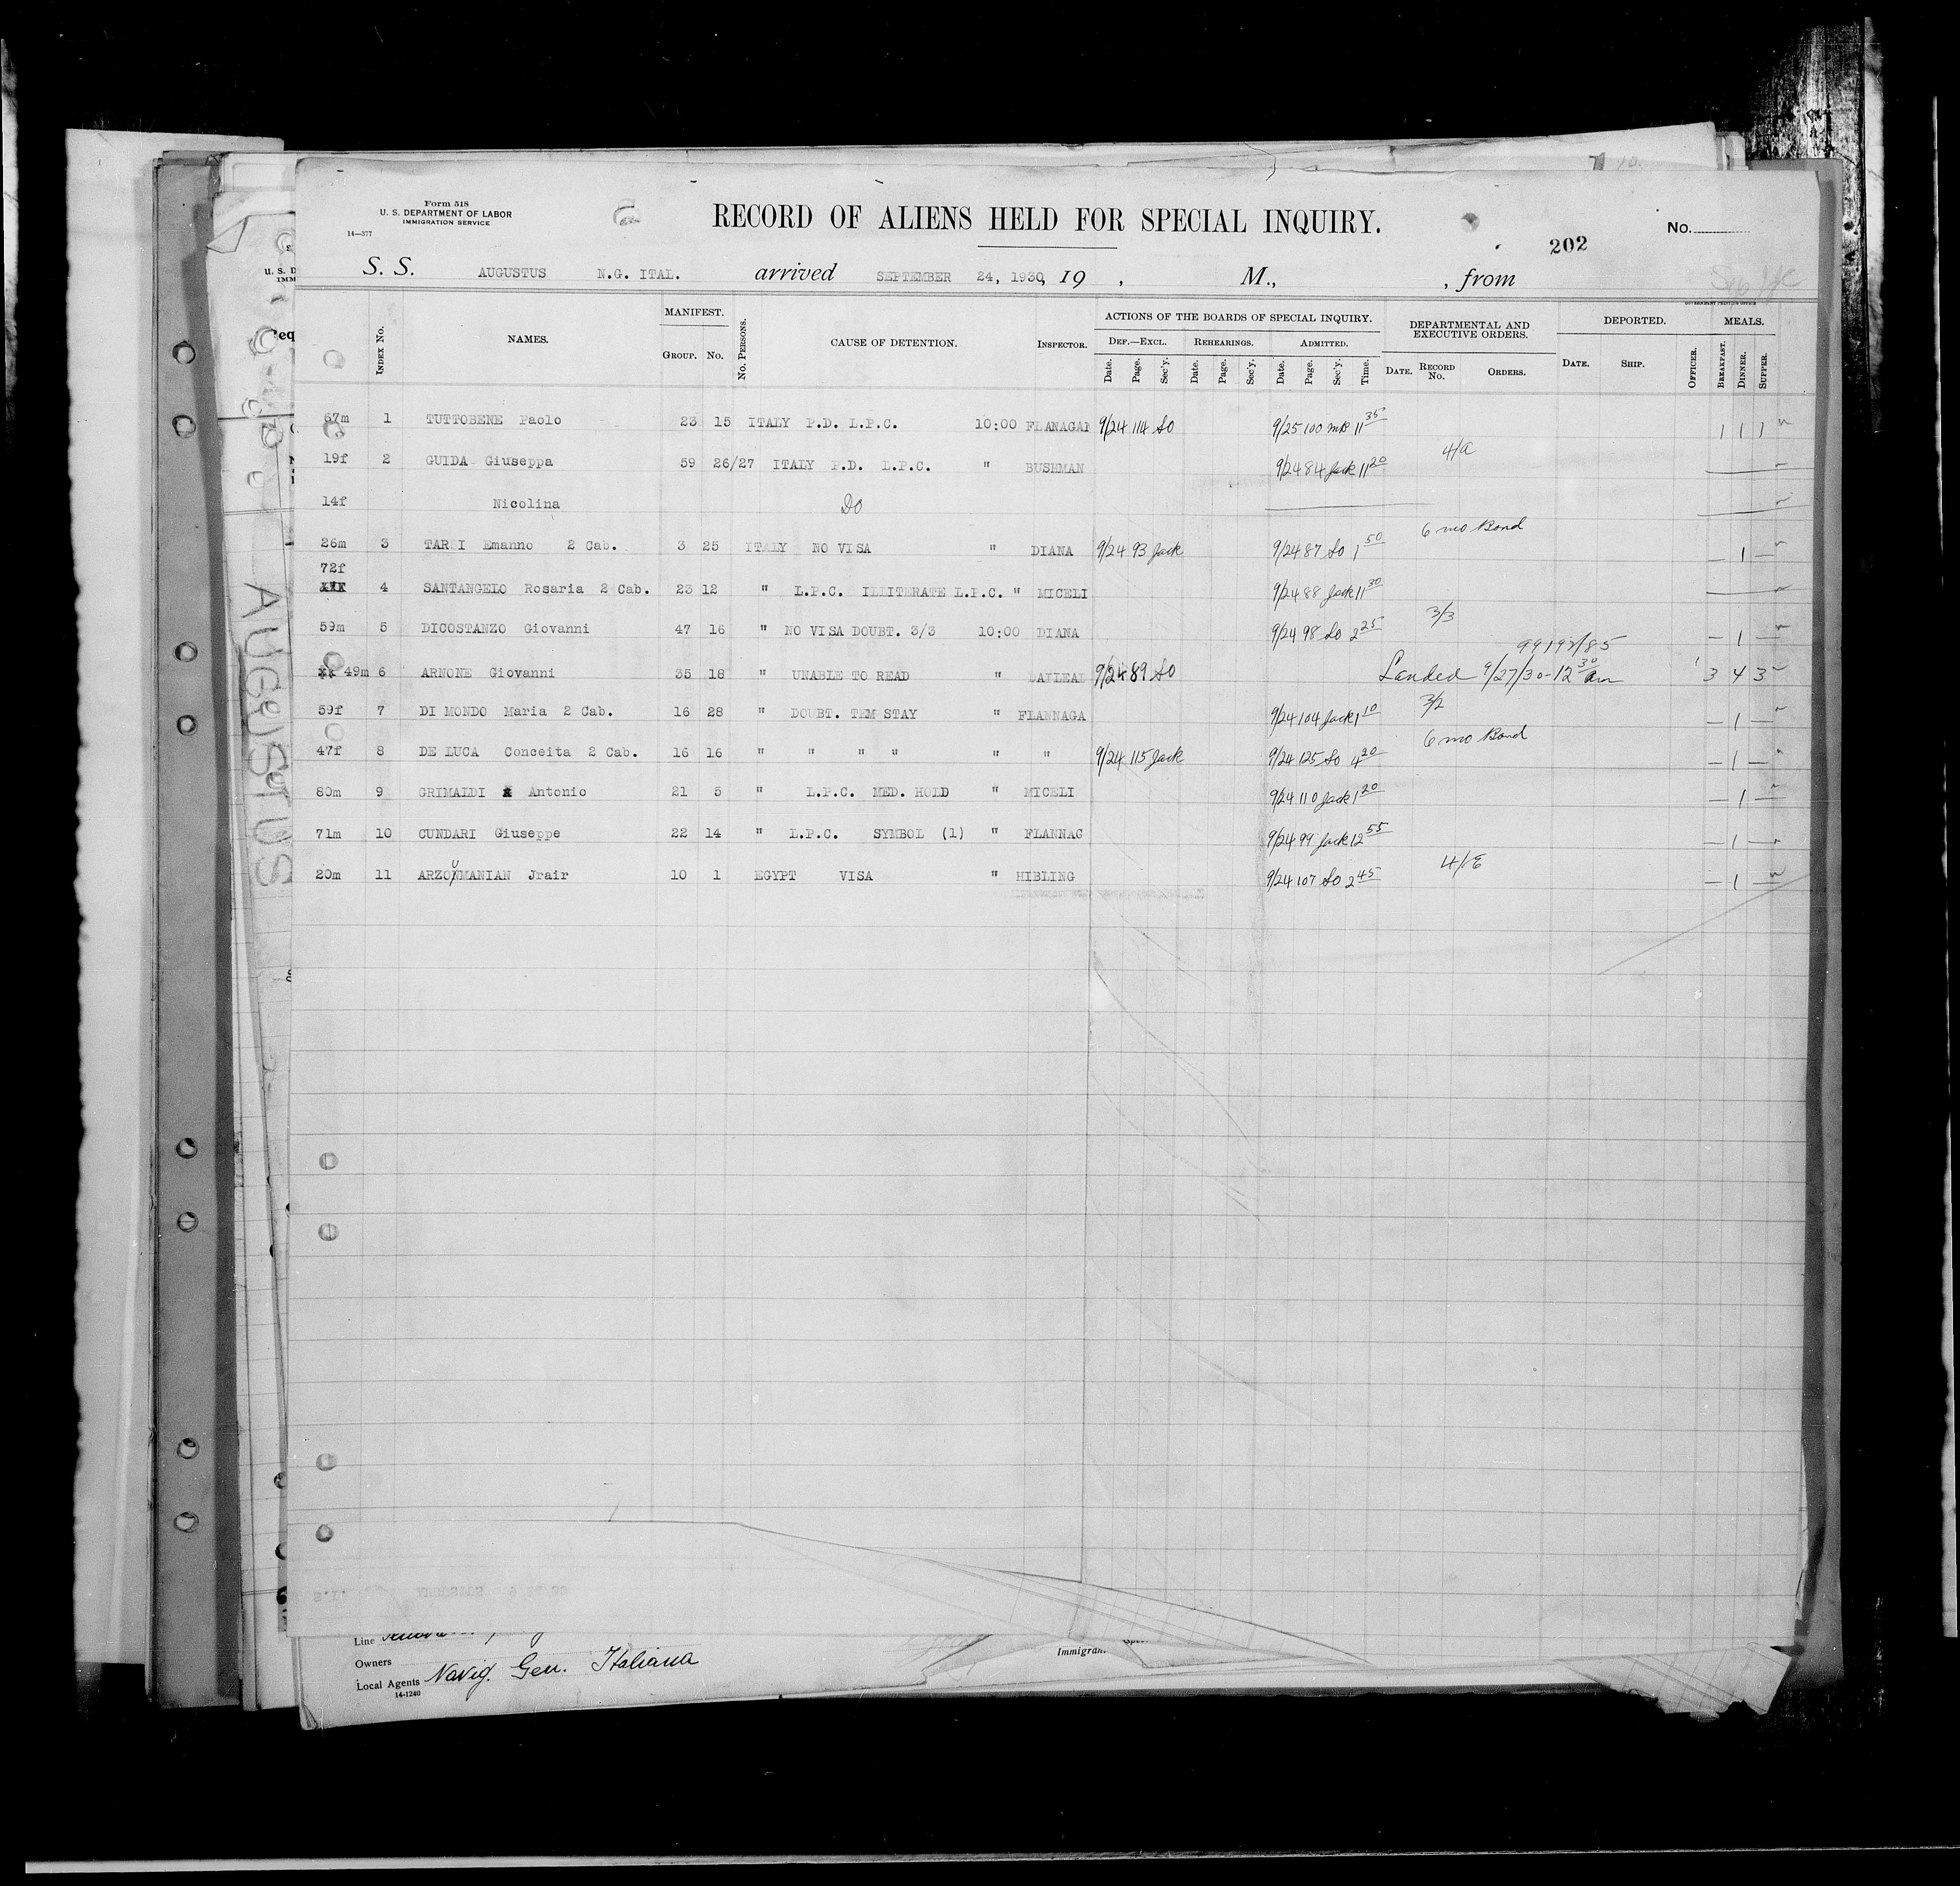 Form 518
U. S. DEPARTMENT OF LABOR
IMMIGRATION SERVICE
14—377
RECORD OF ALIENS HELD FOR SPECIAL INQUIRY.
No.
202
S. S. AUGUSTUS N.G. ITAL. arrived SEPTEMBER 24, 1930, 19 , M., , from
GOVERNMENT PRINTING OFFICE
INDEX No. NAMES. MANIFEST. GROUP. No. No. PERSONS. CAUSE OF DETENTION. INSPECTOR. ACTIONS OF THE BOARDS OF SPECIAL INQUIRY. DEPARTMENTAL AND EXECUTIVE ORDERS. DEPORTED. MEALS.
DEF.—EXCL. REHEARINGS. ADMITTED.
Date. Page. Sec'y. Date. Page. Sec'y. Date. Page. Sec'y. Time. DATE. RECORD No. ORDERS. DATE. SHIP. OFFICER. BREAKFAST. DINNER. SUPPER.
67m 1 TUTTOBENE Paolo 23 15 ITALY P.D. L.P.C. 10:00 FLANAGAN 9/24 114 So 9/25 100 11 35 1 1 1
4/a
19f 2 GUIDA Giuseppa 59 26/27 ITALY P.D. L.P.C. " BUSHMAN 9/24 84 Jack 11 20
14f Nicolina Do
6 mo Bond
26m 3 TARSI Emanno 2 Cab. 3 25 ITALY NO VISA " DIANA 9/24 93 Jack 9/24 87 So 1 50 — 1 —
72f
XXX 4 SANTANGELO Rosaria 2 Cab. 23 12 " L.P.C. ILLITERATE L.P.C. " MICELI 9/24 88 Jack 11 30
3/3
59m 5 DICOSTANZO Giovanni 47 16 " NO VISA DOUBT. 3/3 10:00 DIANA 9/24 98 So 2 25 — 1 —
99192/85
49m 6 ARNONE Giovanni 35 18 " UNABLE TO READ " 9/24 89 So Landed 9/27/30-12 30 3 4 3
3/2
59f 7 DI MONDO Maria 2 Cab. 16 28 " DOUBT. TEM STAY " FLANNAGA 9/24 104 Jack 1 10 — 1 —
6 mo Bond
47f 8 DE LUCA Conceita 2 Cab. 16 16 " " " " " " 9/24 115 Jack 9/24 125 So 4 20 — 1 —
80m 9 GRIMALDI Antonio 21 5 " L.P.C. MED. HOLD " MICELI 9/24 110 Jack 1 20 — 1 —
71m 10 CUNDARI Giuseppe 22 14 " L.P.C. SYMBOL (1) " FLANNAG 9/24 99 Jack 12 55 — 1 —
4/E
20m 11 ARZOUMANIAN Jrair 10 1 EGYPT VISA " HIBLING 9/24 107 So 2 45 — 1 —
AUGUSTUS
Line
Owners
Local Agents Navig. Gen. Italiana
14-1240